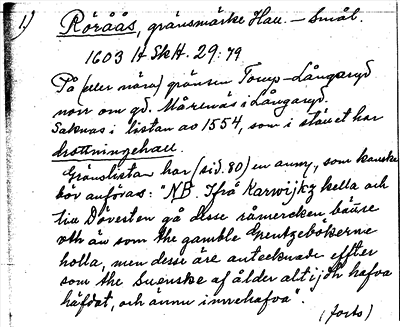 1)
Röråås, gränsmärke Hall. – Smål.
1603 It Sk H. 29:79
På (eller nära) gränsen Torup–Långaryd
norr om gd. Mårenäs i Långaryd.
Saknas i listan av 1554, som i stället har
drottningehall.
Gränslistan har (sid. 80) en anm., som kanske
bör anföras: "NB. Ifrå Karwijkz kella och
till Döversten gå desse råmercken bättre
uth än som the gamble Grentzebökerne
holla, men desse äre antecknade effter
som the Suenske af ålder altijdh hafva
häfdat, och ännu innehafva".
(forts)